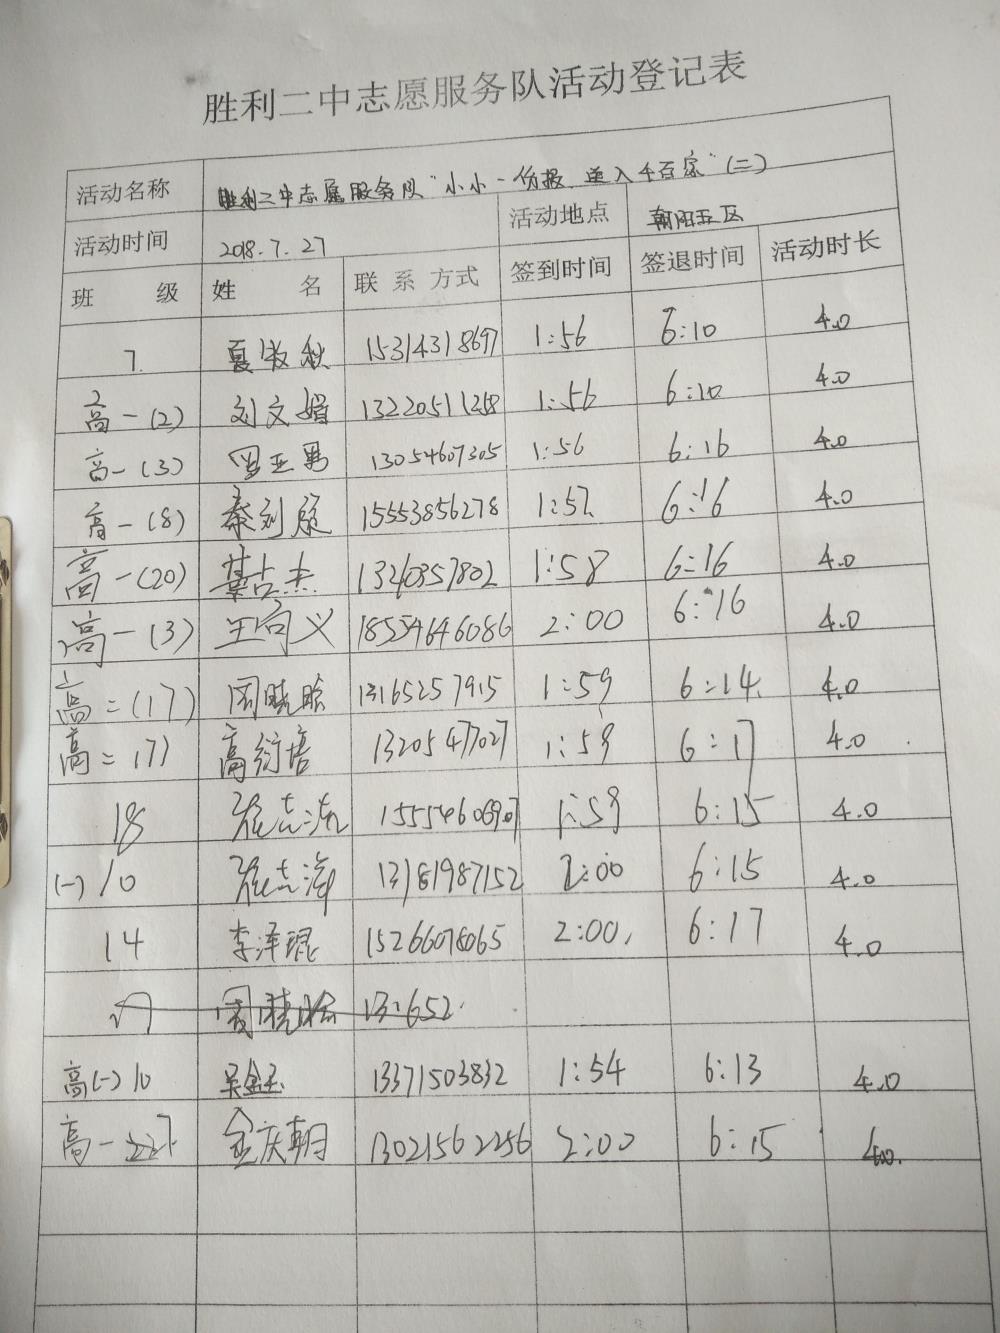 胜利二中志愿服务队活动登记表
活动名称 胜利二中志愿服务队“小小一份报 送入千百家”(二)
活动时间 2018.7.27 活动地点 朝阳五区
班 级 姓 名 联 系 方式 签到时间 签退时间 活动时长
7. 夏 秋 15314318697 1:56 6:10 4.0
高一(2) 刘文娟 13220511268 1:56 6:10 4.0
高一(3) 罗亚男 13054607305 1:56 6:16 4.0
高一(8) 秦刘 15553856278 1:57 6:16 4.0
高一(20) 綦占杰 1:58 6:16 4.0
高一(3) 王向义 18554646086 2:00 6:16 4.0
高二(17) 周晓晗 13165257915 1:59 6:14 4.0
高二17) 高衍培 13205477027 1:59 6:17 4.0
18 张志 1:59 6:15 4.0
(一)10 张志海 13181987152 2:00 6:15 4.0
14 李泽琨 15266078065 2:00 6:17 4.0
周晓晗 131652
高(一)10 吴金玉 13371503832 1:54 6:13 4.0
高一 7 金庆朝 13021562256 2:00 6:15 4.0